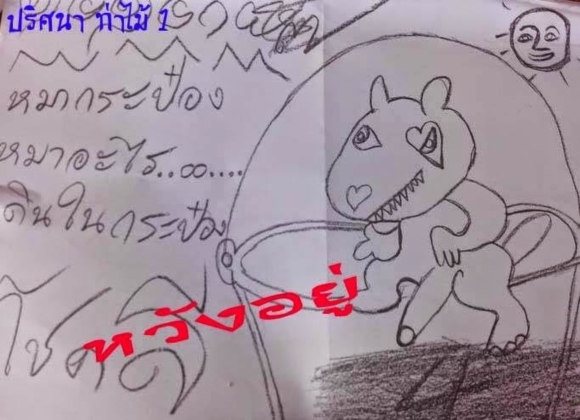 ปริศนา ท่าไม้ 1
หมากระป๋อง
หมาอะไร..∞....
เดินในกระป๋อง
โชคดี
หวังอยู่